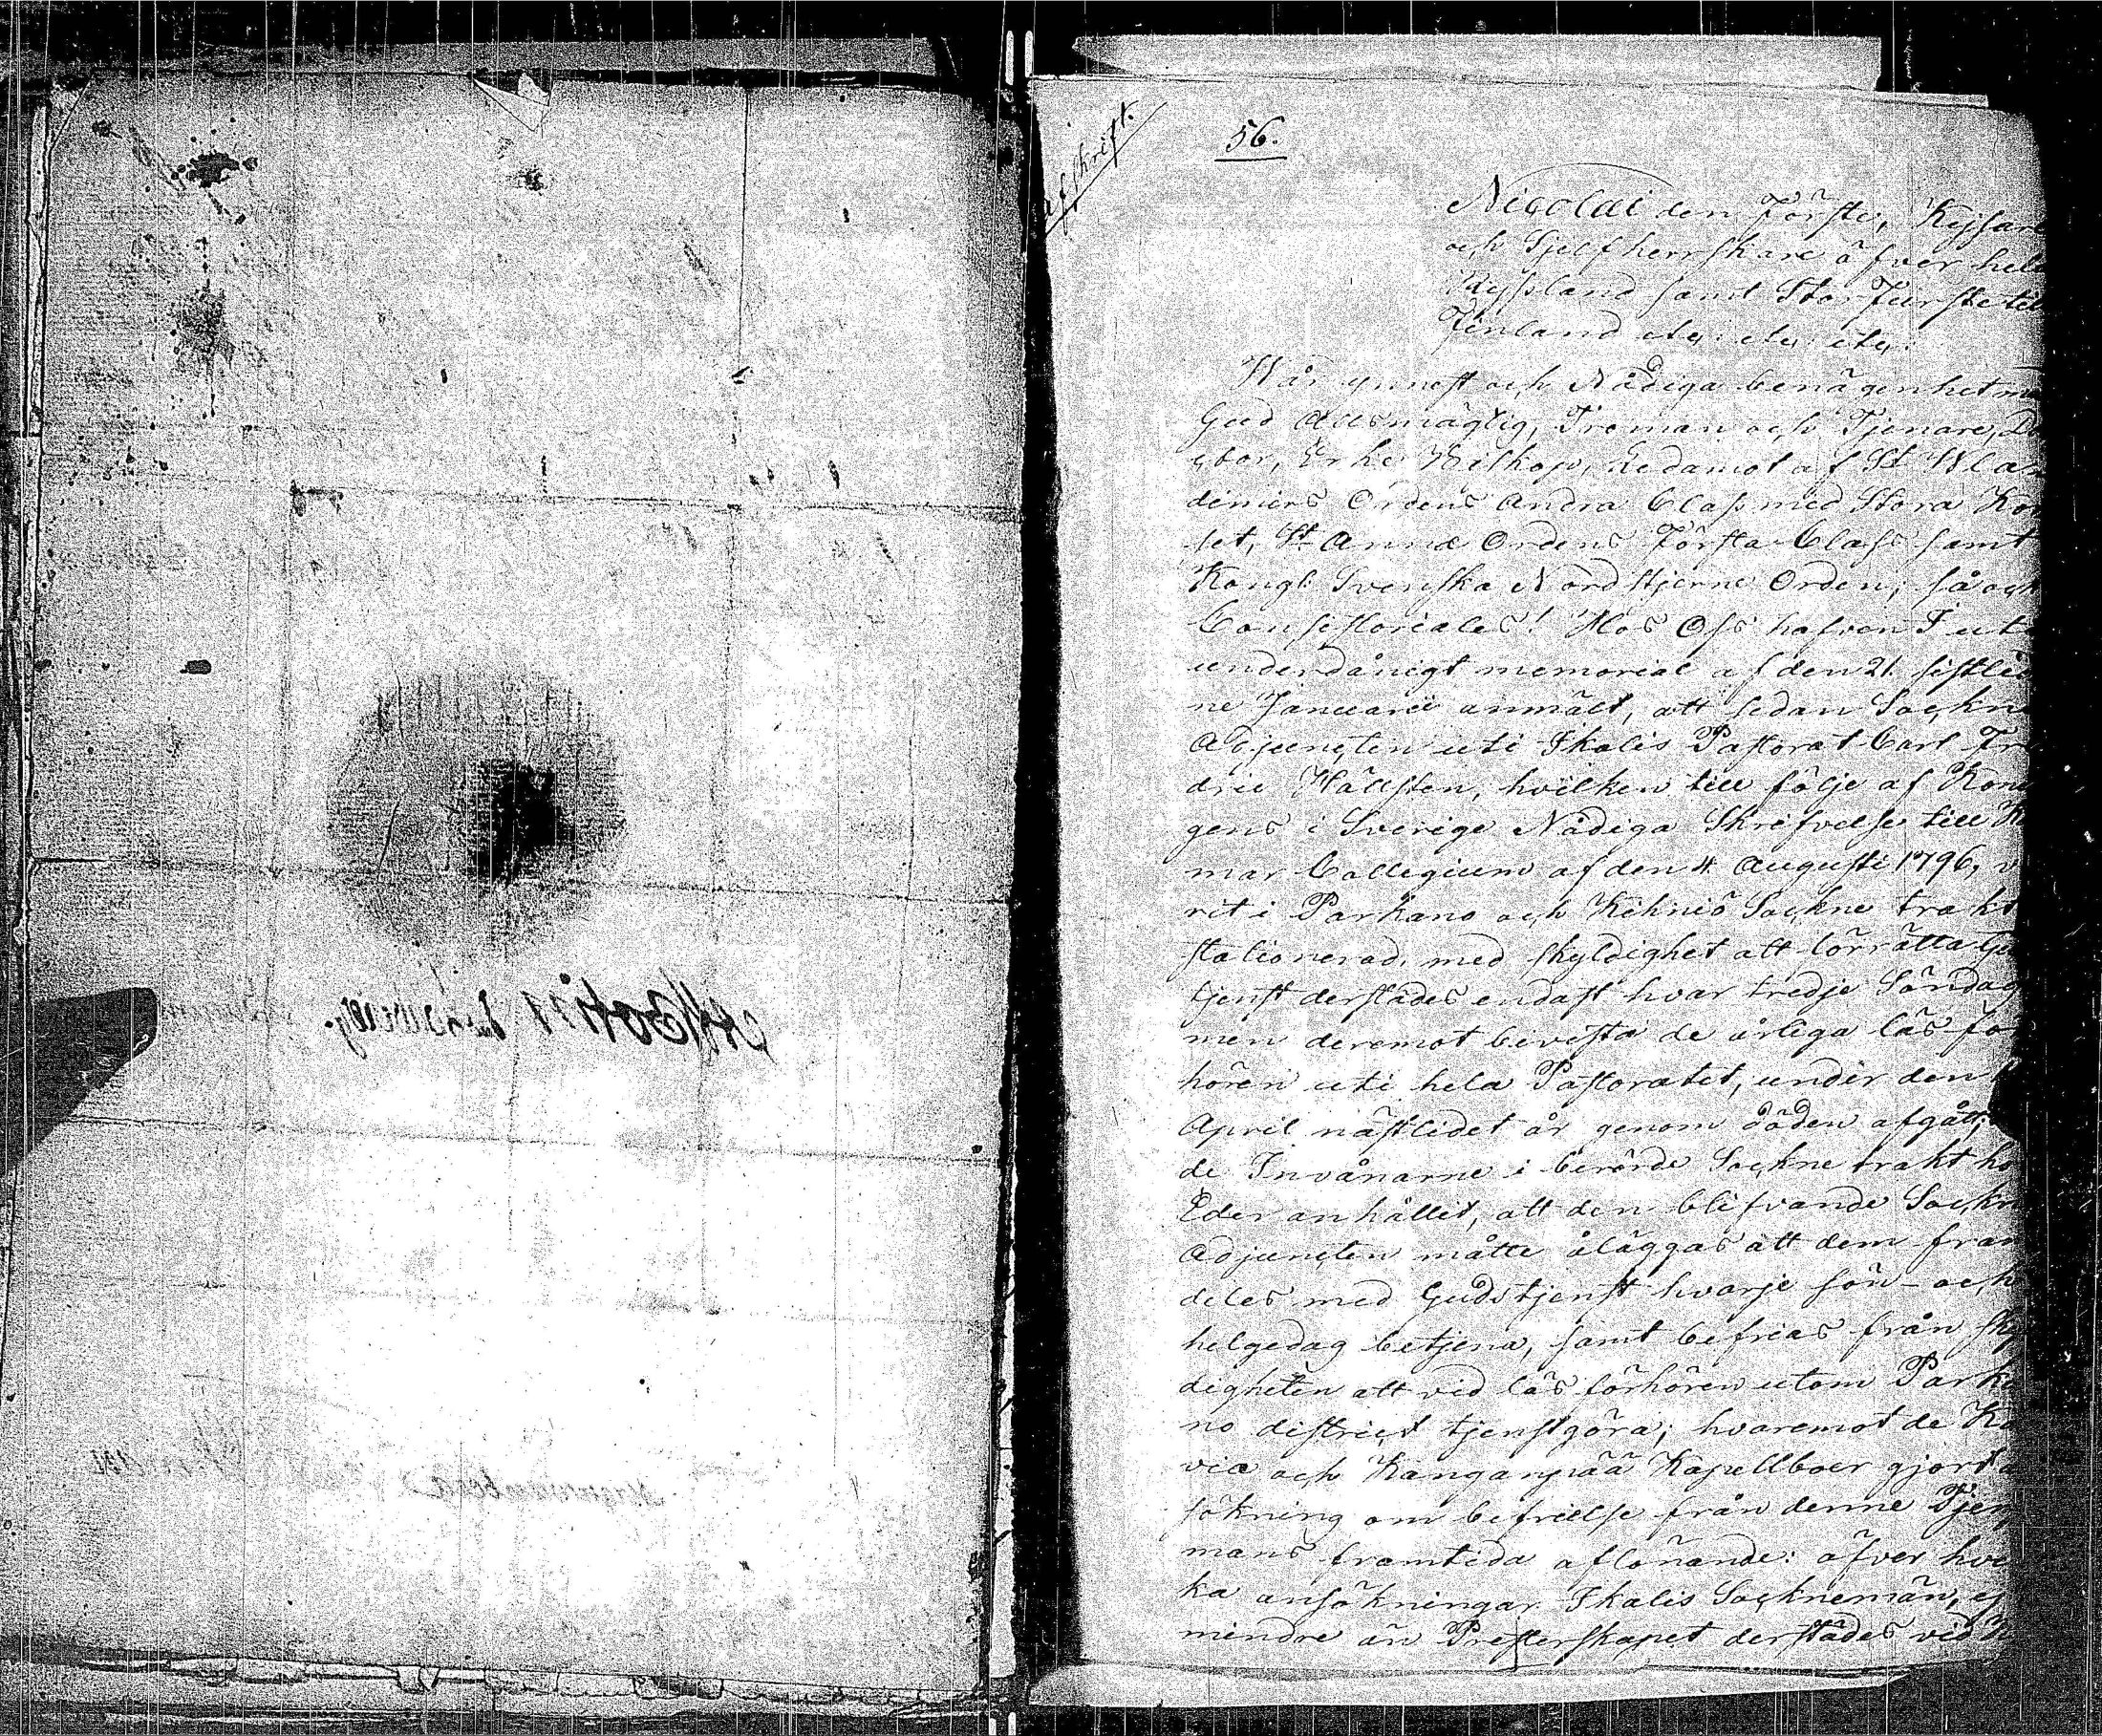 afskrift.
56.
Nicolai den Förste, Kejsare
och Sjelfherrskare öfver hela
Ryssland samt Storfurste till
Finland etc: etc: etc:
Wår ynnest och Nådiga benägenhet
Gud Allsmägtig, Troman och Tjenare,
Erke Biskop, Ledamot af St Wla
dimirs Ordens Andra Class med Stora Kor
set, St Annæ Ordens Första Class samt
Kongl: Svenska Nordstjerne Orden, så och
Consistoriales! Hos Oss hafven I uti
underdånigt memorial af den 21. sistled
ne Januarii anmält, att sedan Sockne
Adjuncten uti Ikalis Pastorat Carl Fre
dric Hällsten, hvilken till följe af Konun
gens i Sverige Nådiga Skrifvelse till
mar Collegium af den 4 Augusti 1796,
rit i Parkano och Kihniö Sockne trakt
stationerad, med skyldighet att förrätta Gud
tjenst derstädes endast hvar tredje Söndag
men deremot bevista de årliga läs för
hören uti hela Pastoratet, under den
April nästlidet år genom döden afgått,
de Invånarne i berörde Sockne trakt ho
Eder anhållit, att den blifvande Sockne
Adjuncten måtte åläggas att dem fram
deles med Gudstjenst hvarje sön- och
helgedag betjena, samt befrias från skyl
digheten att vid läs förhören utom Parka
no district tjenstgöra; hvaremot de
via och Kangampää Kapellboer gjort an
sökning om befrielse från denne Tjenst
mans framtida aflönande: öfver hvil
ka ansökningar Ikalis Sockneman, ej
mindre än Presterskapet derstädes vid